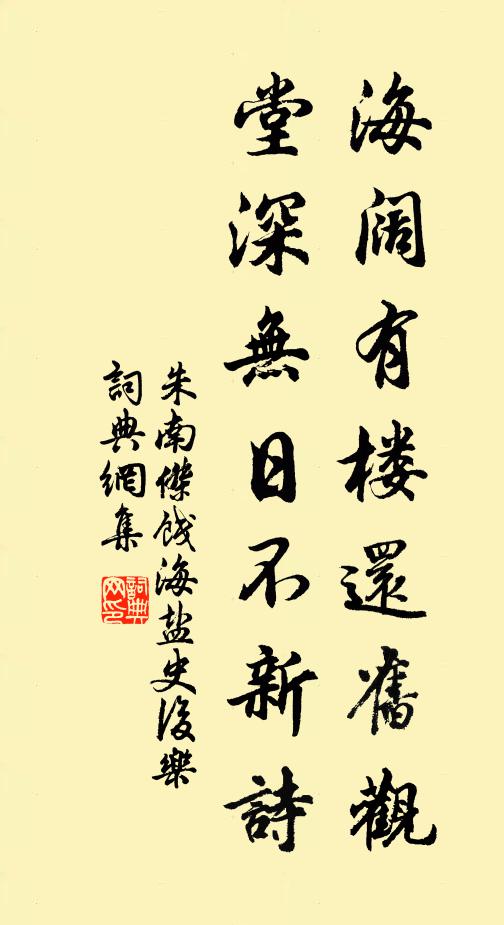 海阔有楼還舊觀
堂深無日不新詩
朱南傑餞海盐史後樂
詞典網集